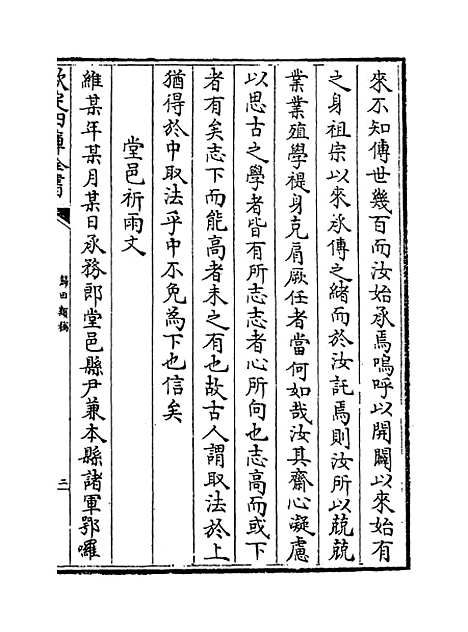 來不知傳世幾百而汝始承焉嗚呼以開闢以來始有
之身祖宗以來承傳之緒而於汝託焉則汝所以兢兢
業業殖學禔身克肩厥任者當何如哉汝其齋心凝慮
以思古之學者皆有所志志者心所向也志高而或下
者有矣志下而能高者未之有也故古人謂取法於上
猶得於中取法乎中不免為下也信矣
堂邑祈雨文
維某年某月某日承務郎堂邑縣尹兼本縣諸軍鄂囉
欽定四庫全書
歸田類稿
二